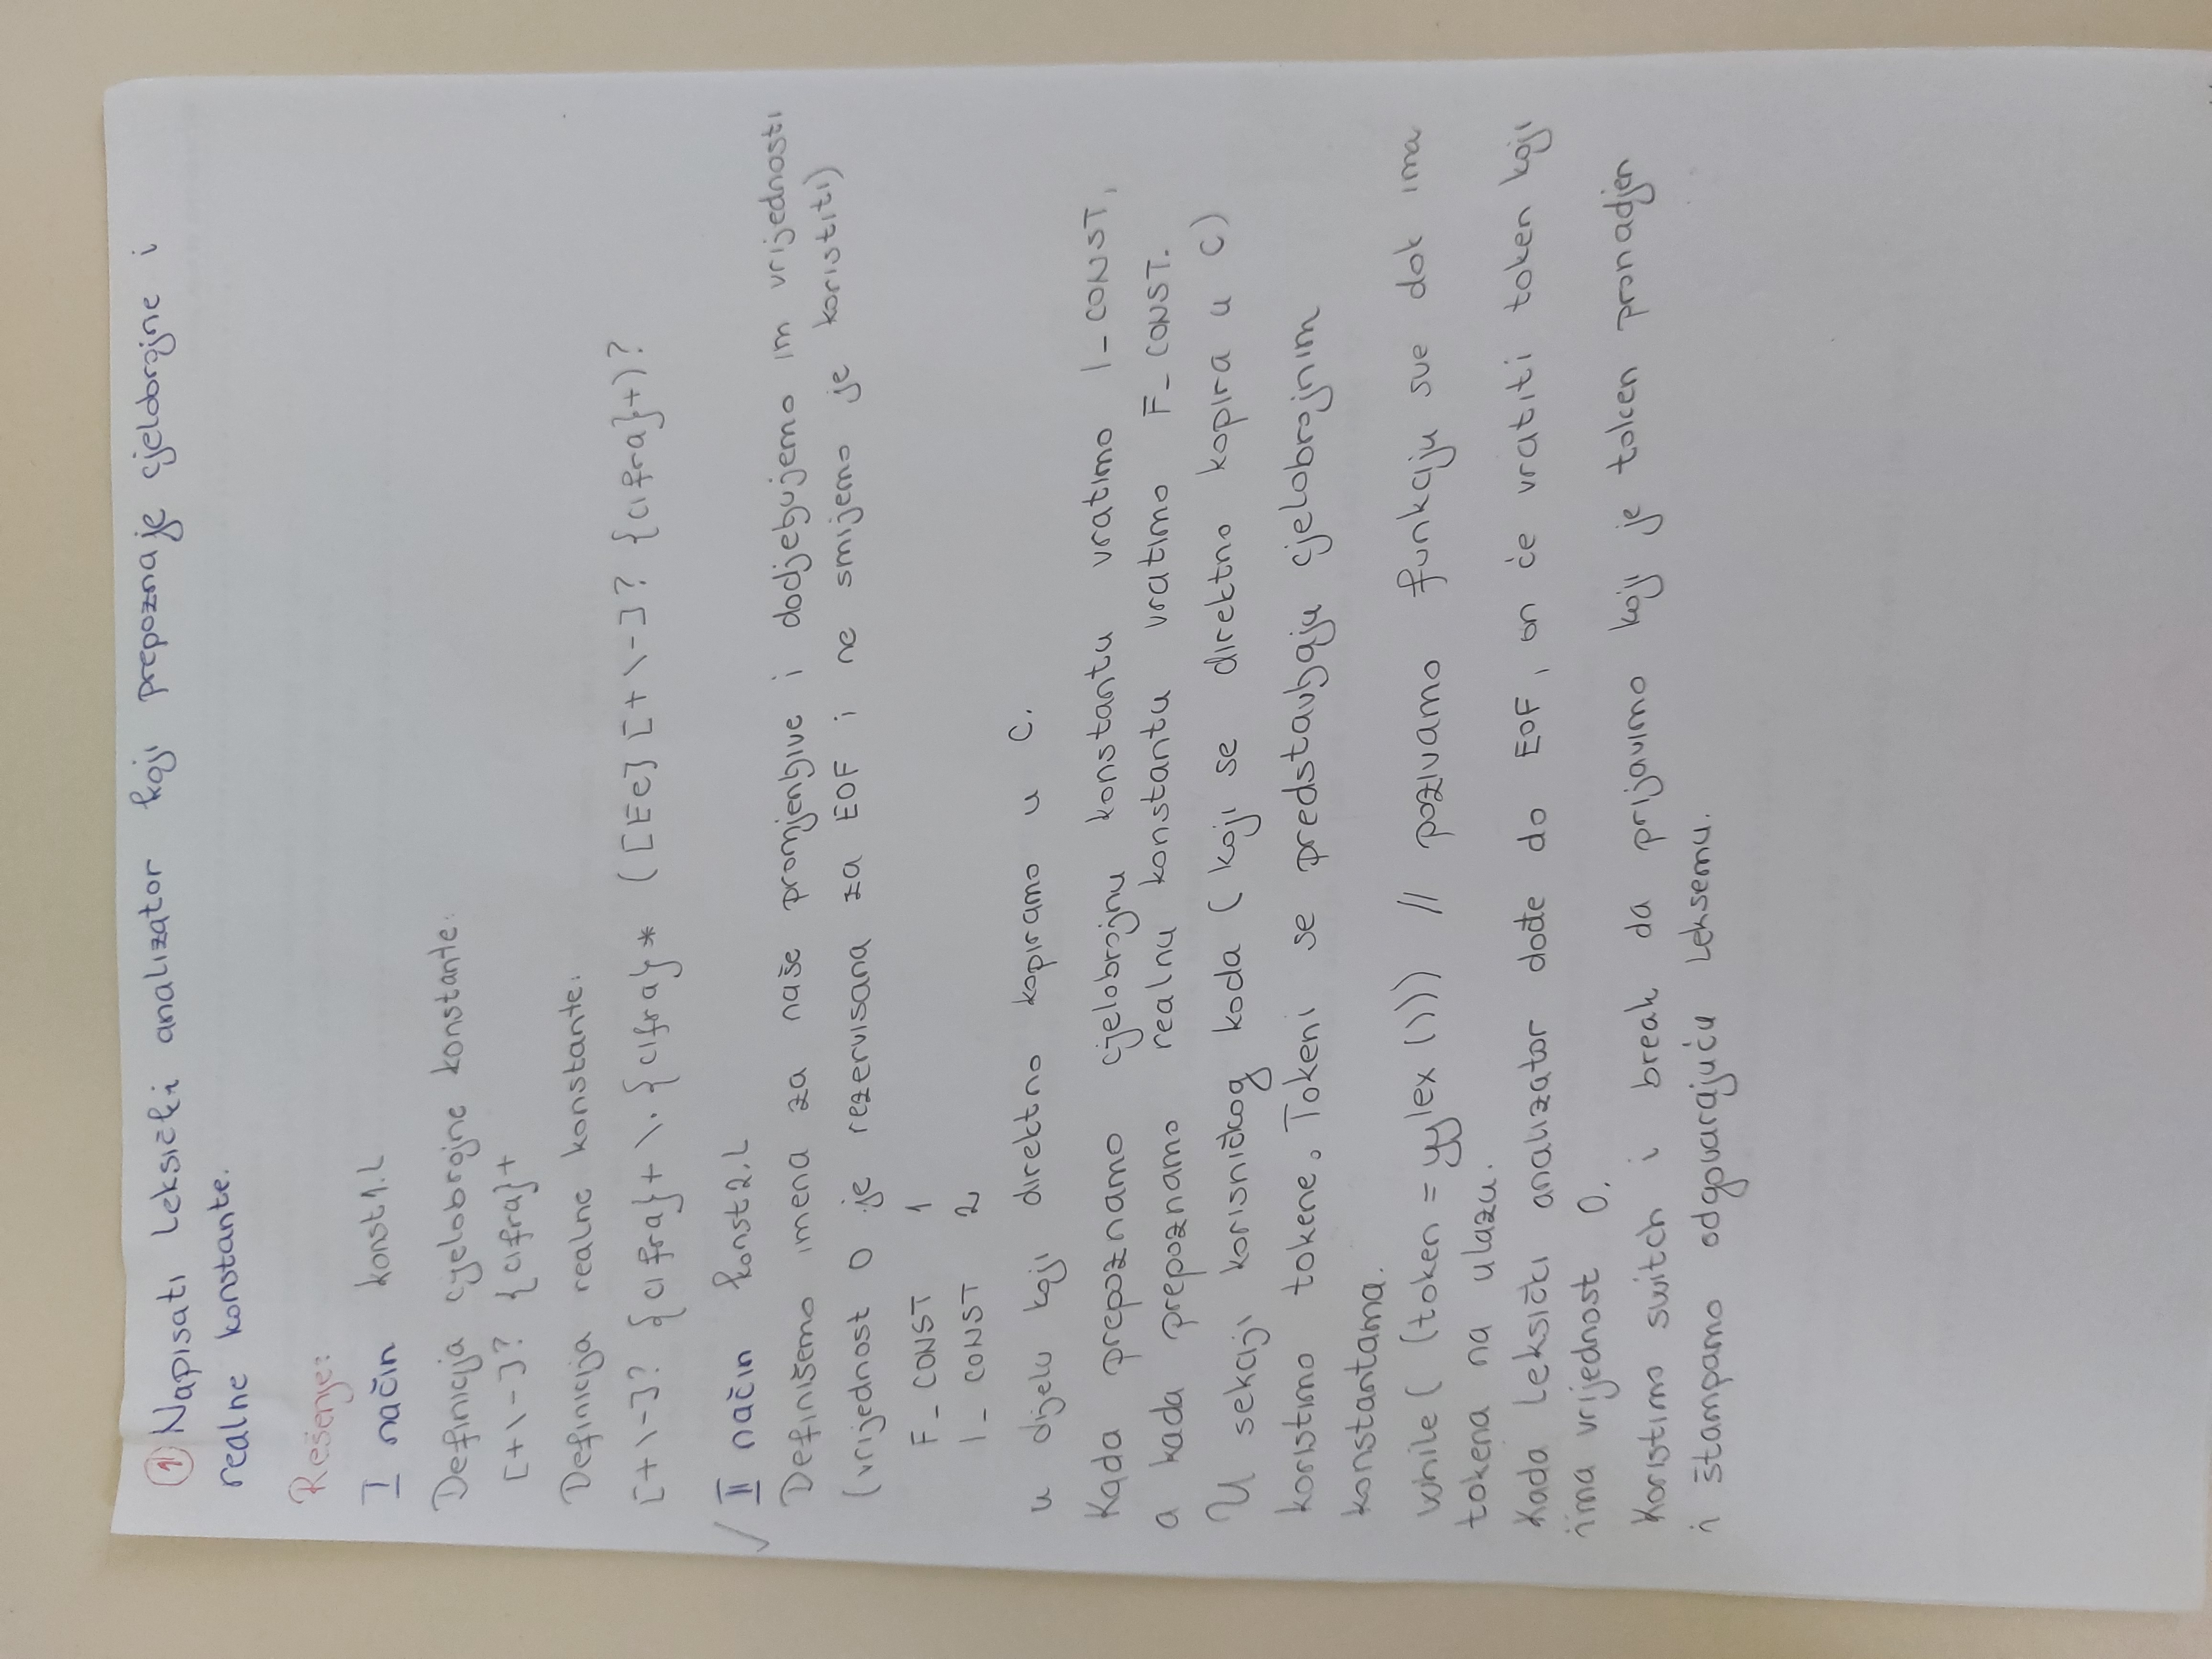 ① Napisati leksički analizator koji prepoznaje cjelobrojne i
realne konstante.
Rešenje:
I način konst1.l
Definicija cjelobrojne konstante:
[+\-]? {cifra}+
Definicija realne konstante:
[+\-]? {cifra}+ \. {cifra}* ([Ee] [+\-]? {cifra}+)?
✓ II način konst2.l
Definišemo imena za naše promjenljive i dodjeljujemo im vrijednosti
(vrijednost 0 je rezervisana za EOF i ne smijemo je koristiti)
F_CONST 1
I_CONST 2
u dijelu koji direktno kopiramo u C.
Kada prepoznamo cjelobrojnu konstantu vratimo I_CONST,
a kada prepoznamo realnu konstantu vratimo F_CONST.
U sekciji korisničkog koda (koji se direktno kopira u C)
koristimo tokene. Tokeni se predstavljaju cjelobrojnim
konstantama.
while( (token = yylex ())) // pozivamo funkciju sve dok ima
tokena na ulazu.
Kada leksički analizator dođe do EOF, on će vratiti token koji
ima vrijednost 0.
Koristimo switch i break da prijavimo koji je token pronadjen
i štampamo odgovarajuću leksemu.